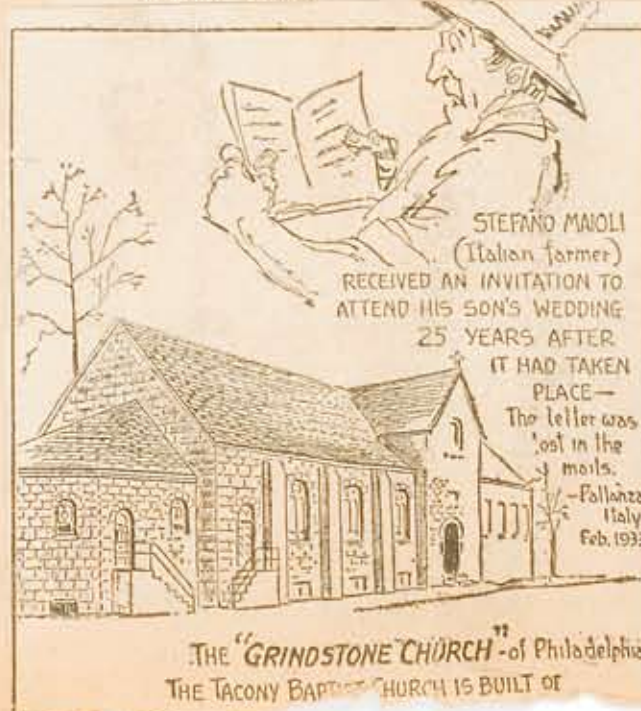 STEFANO MAIOLI
(Italian farmer)
RECEIVED AN INVITATION TO
ATTEND HIS SON'S WEDDING
25 YEARS AFTER
IT HAD TAKEN
PLACE—
The letter was
lost in the
mails.
—Pallanza
Italy
Feb. 193
THE "GRINDSTONE CHURCH"-of Philadelphia
THE TACONY BAPTIST CHURCH IS BUILT OF